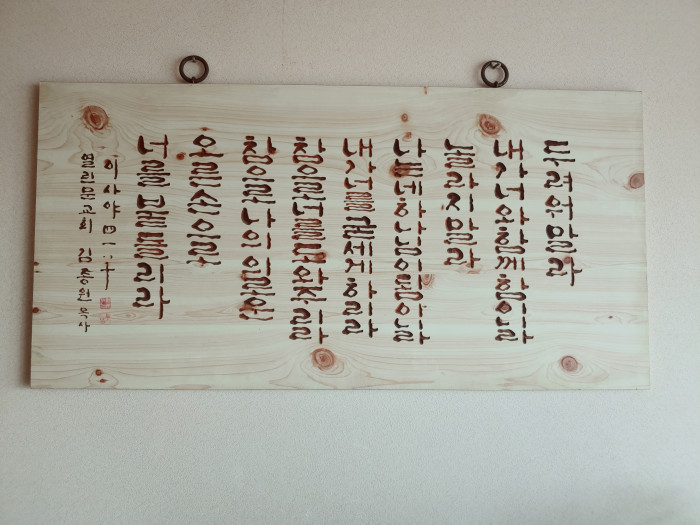 두려워 말라
내가 너와 함께 함이니라
놀라지 말라
나는 네 하나님이 됨이니라
내가 너를 굳세게 하리라
참으로 너를 도와 주리라
참으로 나의 의로운
오른손으로
너를 붙들리라
이사야 四一:十
열린문교회 김종원 목사